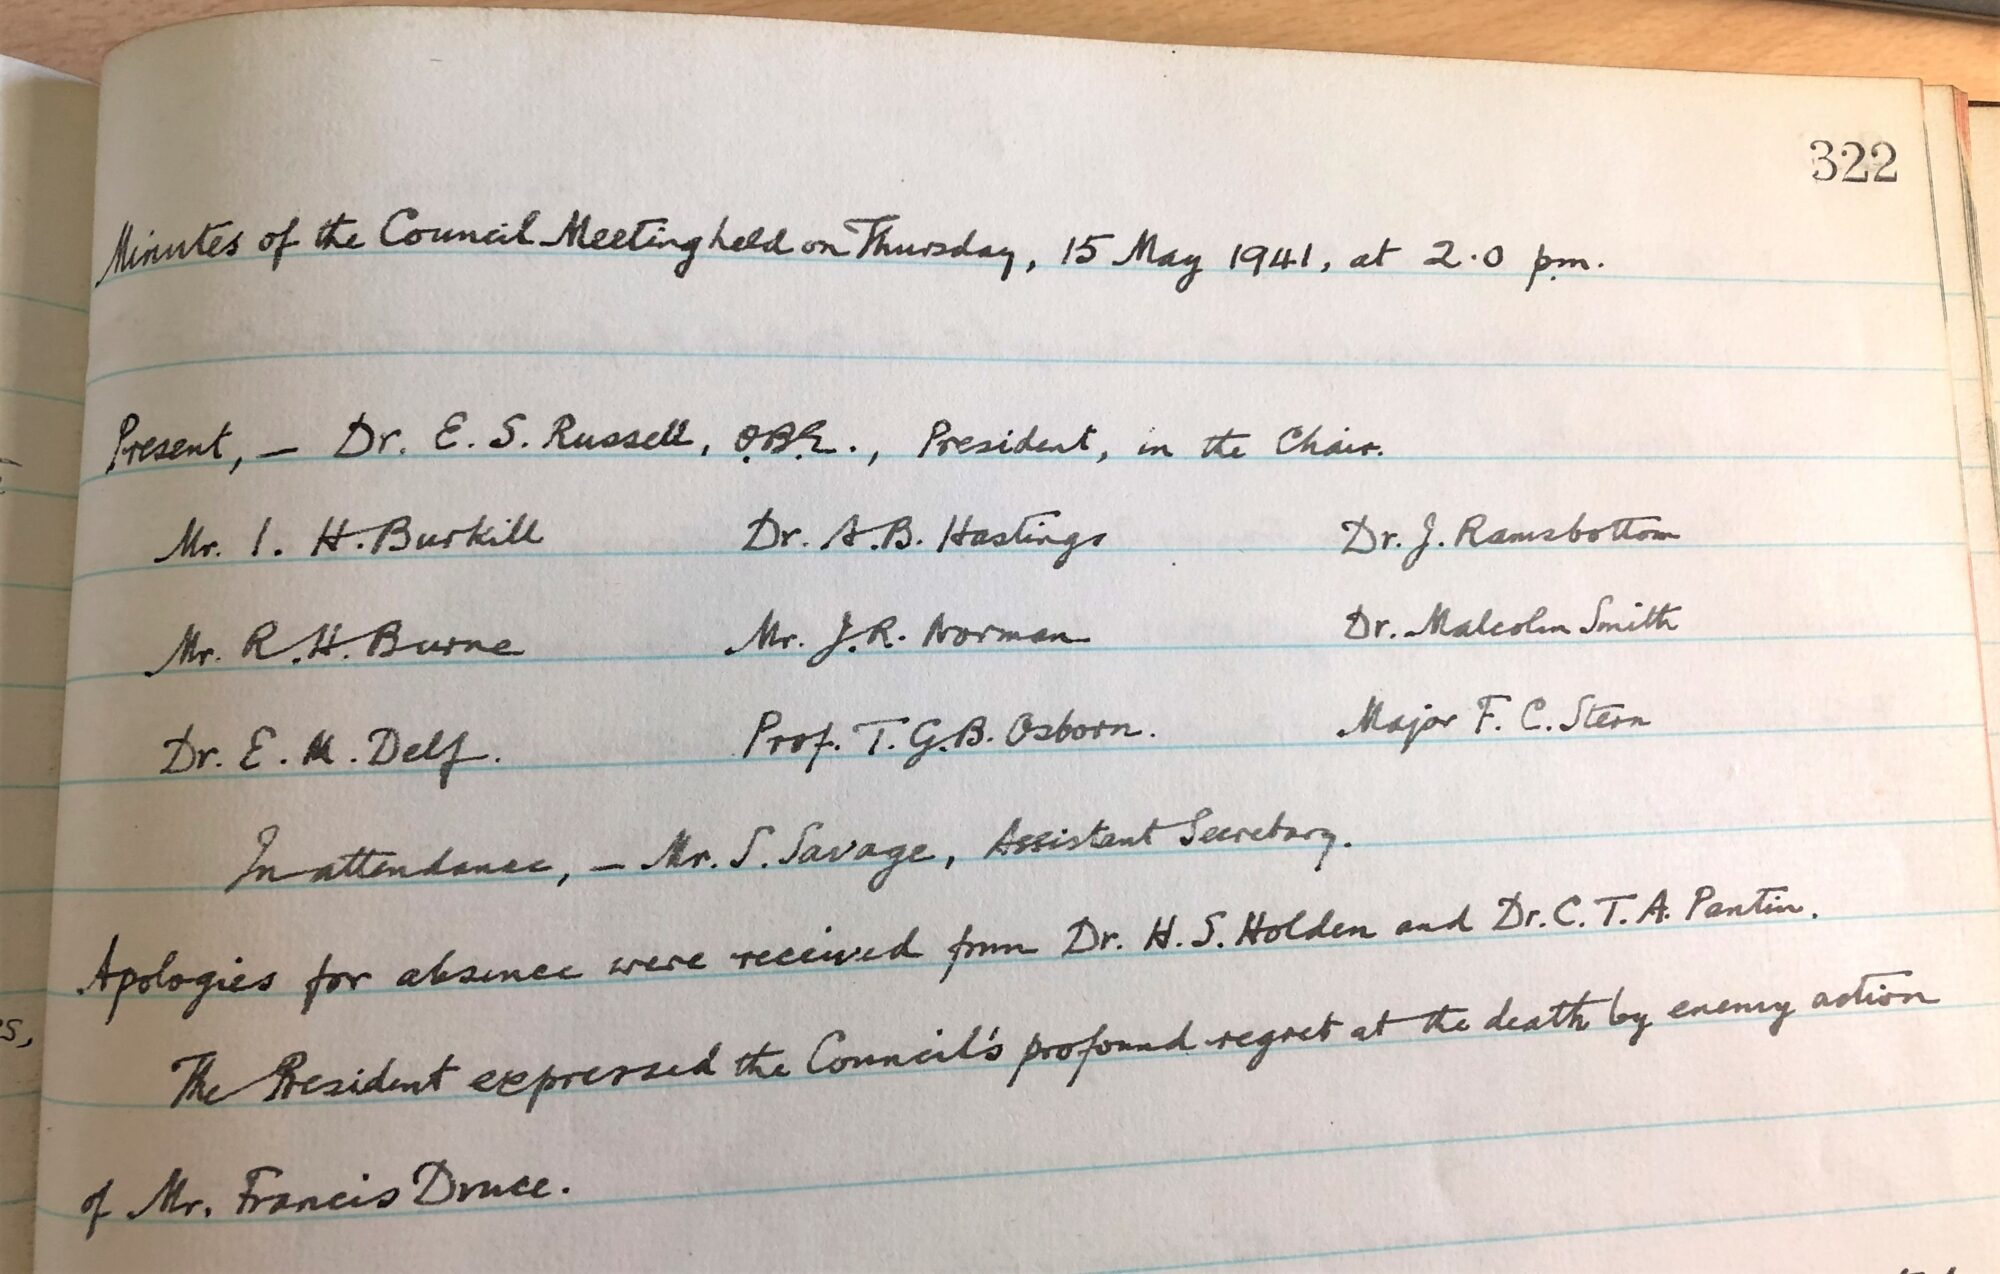 322
Minutes of the Council Meeting held on Thursday, 15 May 1941, at 2.0 p.m.
Present, — Dr. E. S. Russell, O.B.E., President, in the Chair.
Mr. I. H. Burkill Dr. A.B. Hastings Dr. J. Ramsbottom
Mr. R.H. Burne Mr. J.R. Norman Dr. Malcolm Smith
Dr. E. M. Delf. Prof. T. G.B. Osborn. Major F. C. Stern
In attendance, — Mr. S. Savage, Assistant Secretary.
Apologies for absence were received from Dr. H. S. Holden and Dr. C. T. A. Pantin.
The President expressed the Council's profound regret at the death by enemy action
of Mr. Francis Druce.